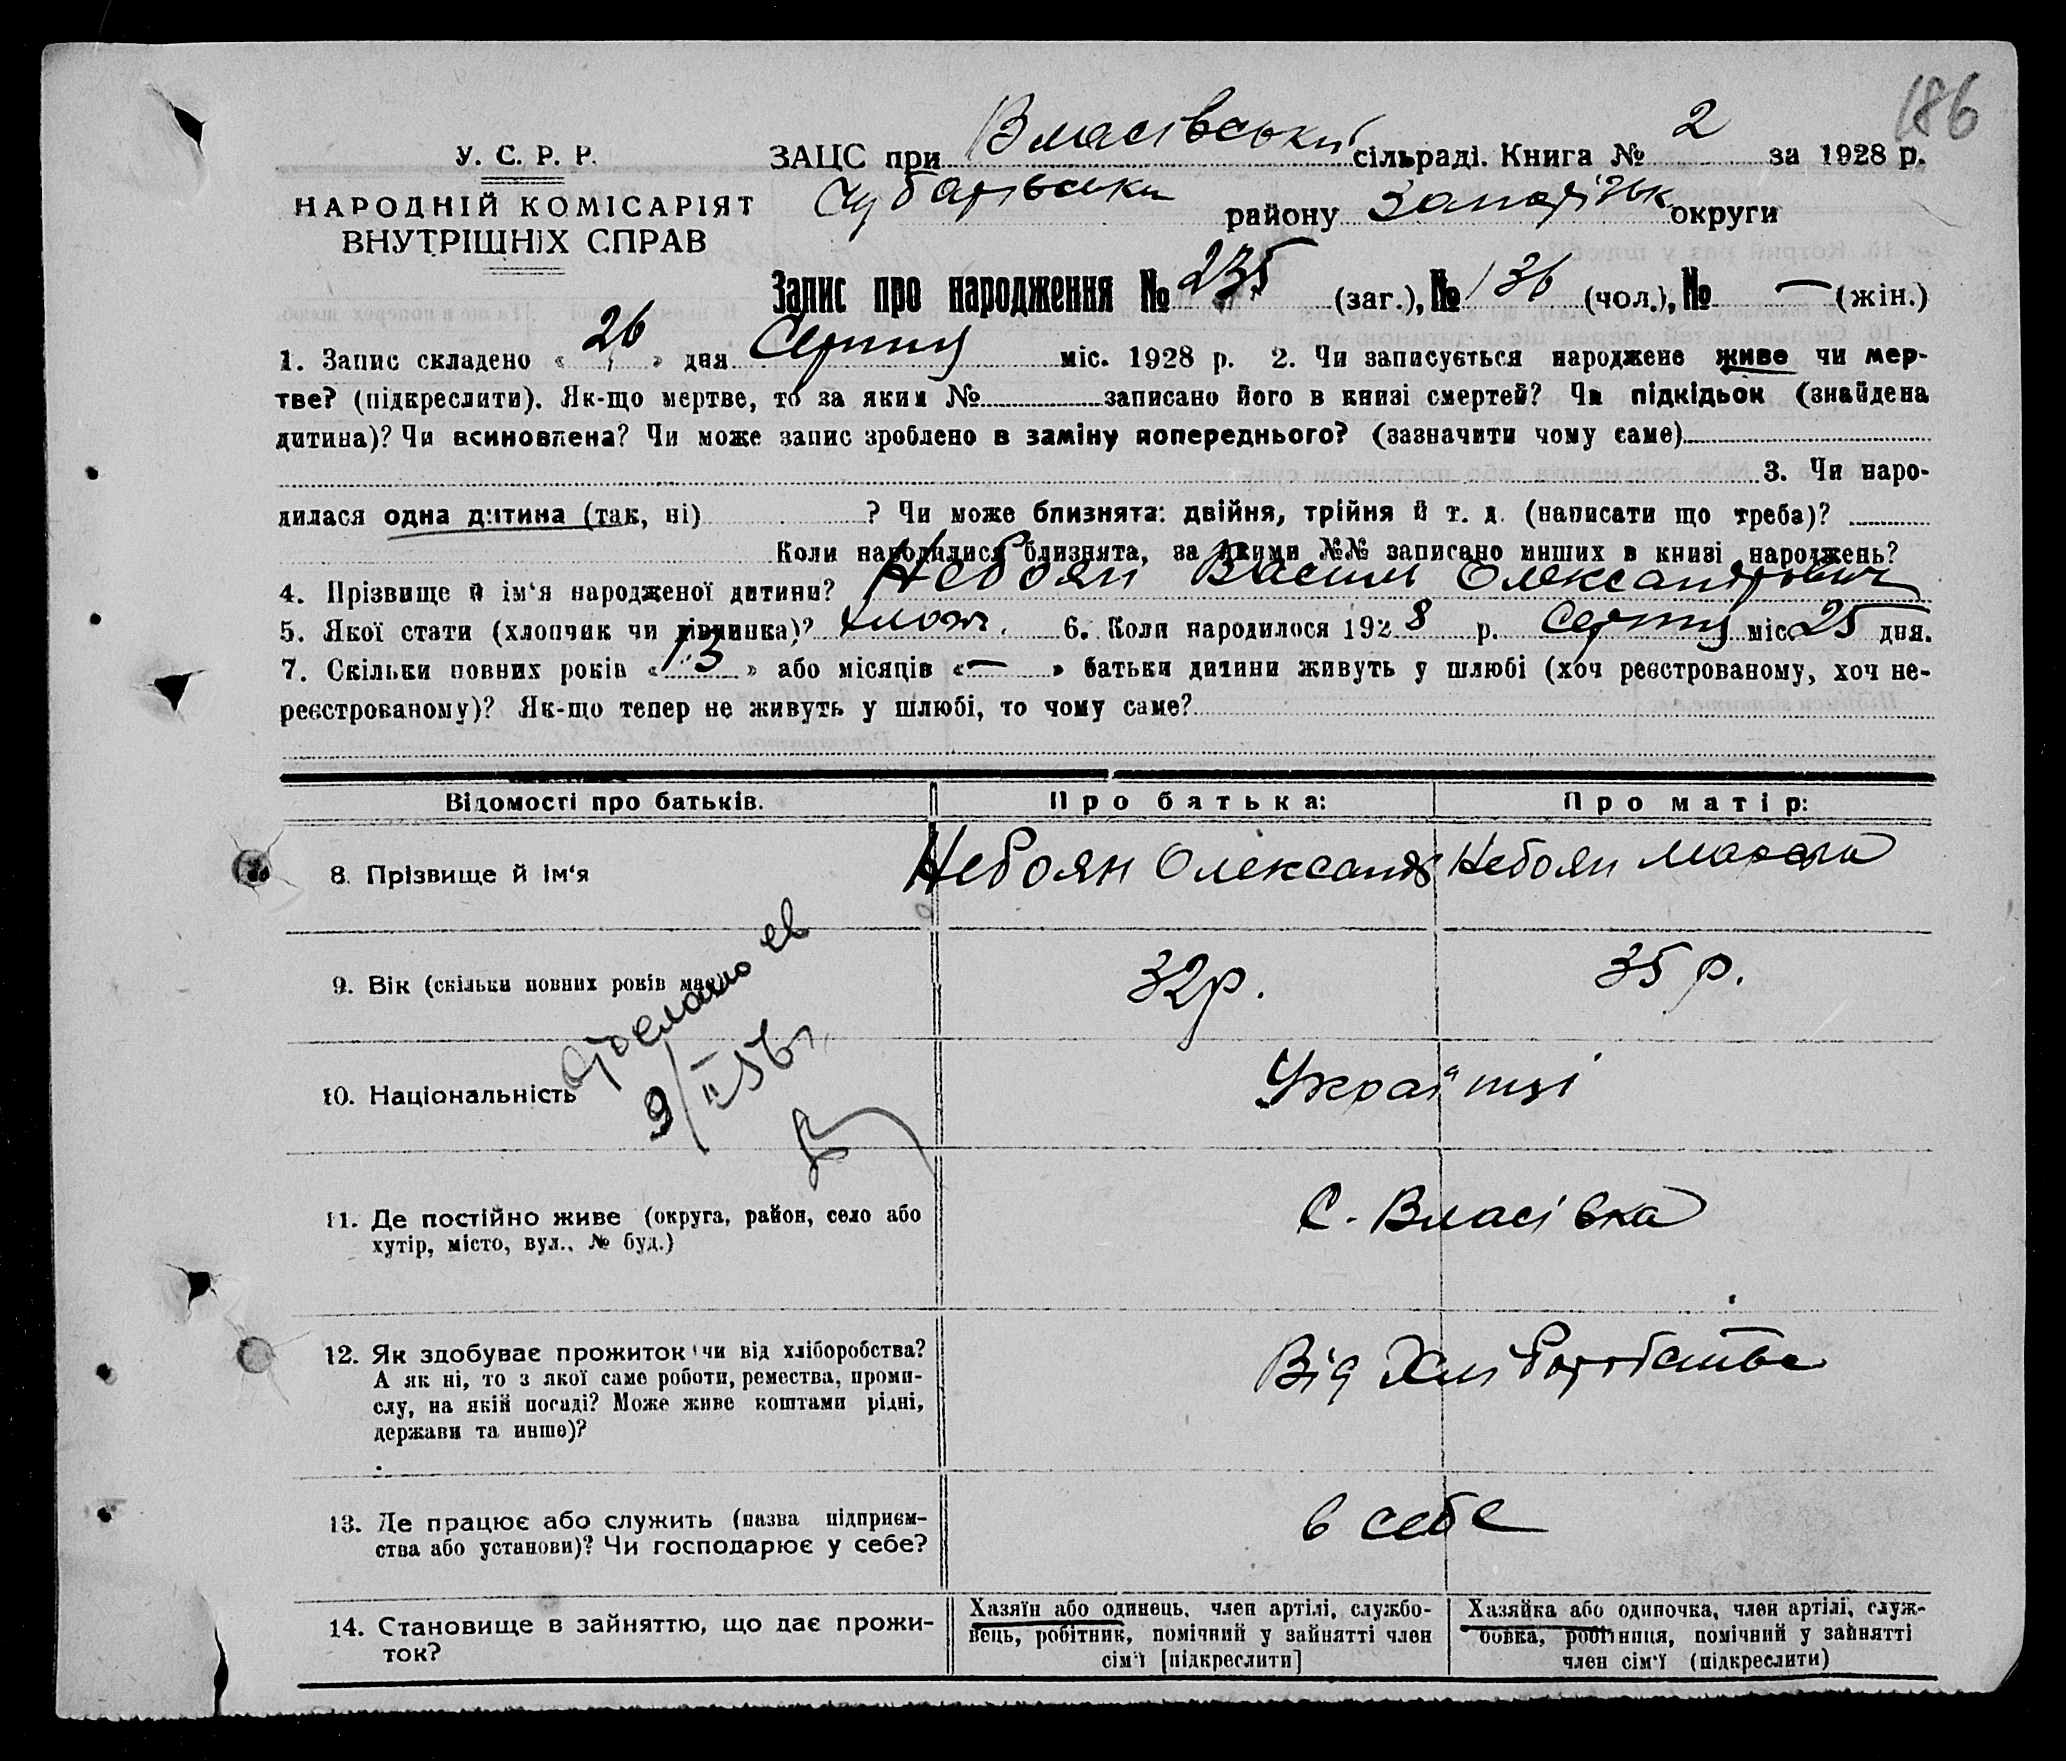 186
У. С. Р. Р.
НАРОДНІЙ КОМІСАРІЯТ
ВНУТРІШНІХ СПРАВ
ЗАЦС при Власівській сільраді. Книга № 2 за 1928 р.
Чубарівськ району Запоріжськ округи
Запис про народження № 235 (заг.), № 136 (чол.), № — (жін.)
1. Запис складено « 26 » дня Серпня міс. 1928 р. 2. Чи записується народжене живе чи мер-
тве? (підкреслити). Як-що мертве, то за яким № записано його в книзі смертей? Чи підкідьок (знайдена
дитина)? Чи всиновлена? Чи може запис зроблено в заміну попереднього? (зазначити чому саме)
3. Чи наро-
дилася одна дитина (так, ні) ? Чи може близнята: двійня, трійня й т. д. (написати що треба)?
Коли народилися близнята, за якими №№ записано инших в книзі народжень?
4. Прізвище й ім‘я народженої дитини? Небоян Василь Олександрович
5. Якої стати (хлопчик чи дівчинка)? хлопч. 6. Коли народилося 1928 р. Серпня міс. 25 дня.
7. Скільки повних років « 13 » або місяців « — » батьки дитини живуть у шлюбі (хоч реєстрованому, хоч не-
реєстрованому)? Як-що тепер не живуть у шлюбі, то чому саме?
Відомості про батьків. Про батька: Про матір:
8. Прізвище й ім‘я Небоян Олександ Небоян
9. Вік (скільки повних років має) 32 р. 35 р.
9/II 56 г.
10. Національність Українці
11. Де постійно живе (округа, район, село або
хутір, місто, вул., № буд.) С. Власівка
12. Як здобуває прожиток чи від хліборобства?
А як ні, то з якої саме роботи, ремества, проми-
слу, на якій посаді? Може живе коштами рідні,
держави та инше)? Від Хліборобства
13. Де працює або служить (назва підприєм-
ства або установи)? Чи господарює у себе? в себе
14. Становище в зайняттю, що дає прожи-
ток?
Хазяїн або одинець, член артілі, службо-
вець, робітник, помічний у зайнятті член
сім‘ї [підкреслити]
Хазяйка або одиночка, член артілі, служ-
бовка, робітниця, помічний у зайнятті
член сім‘ї (підкреслити)